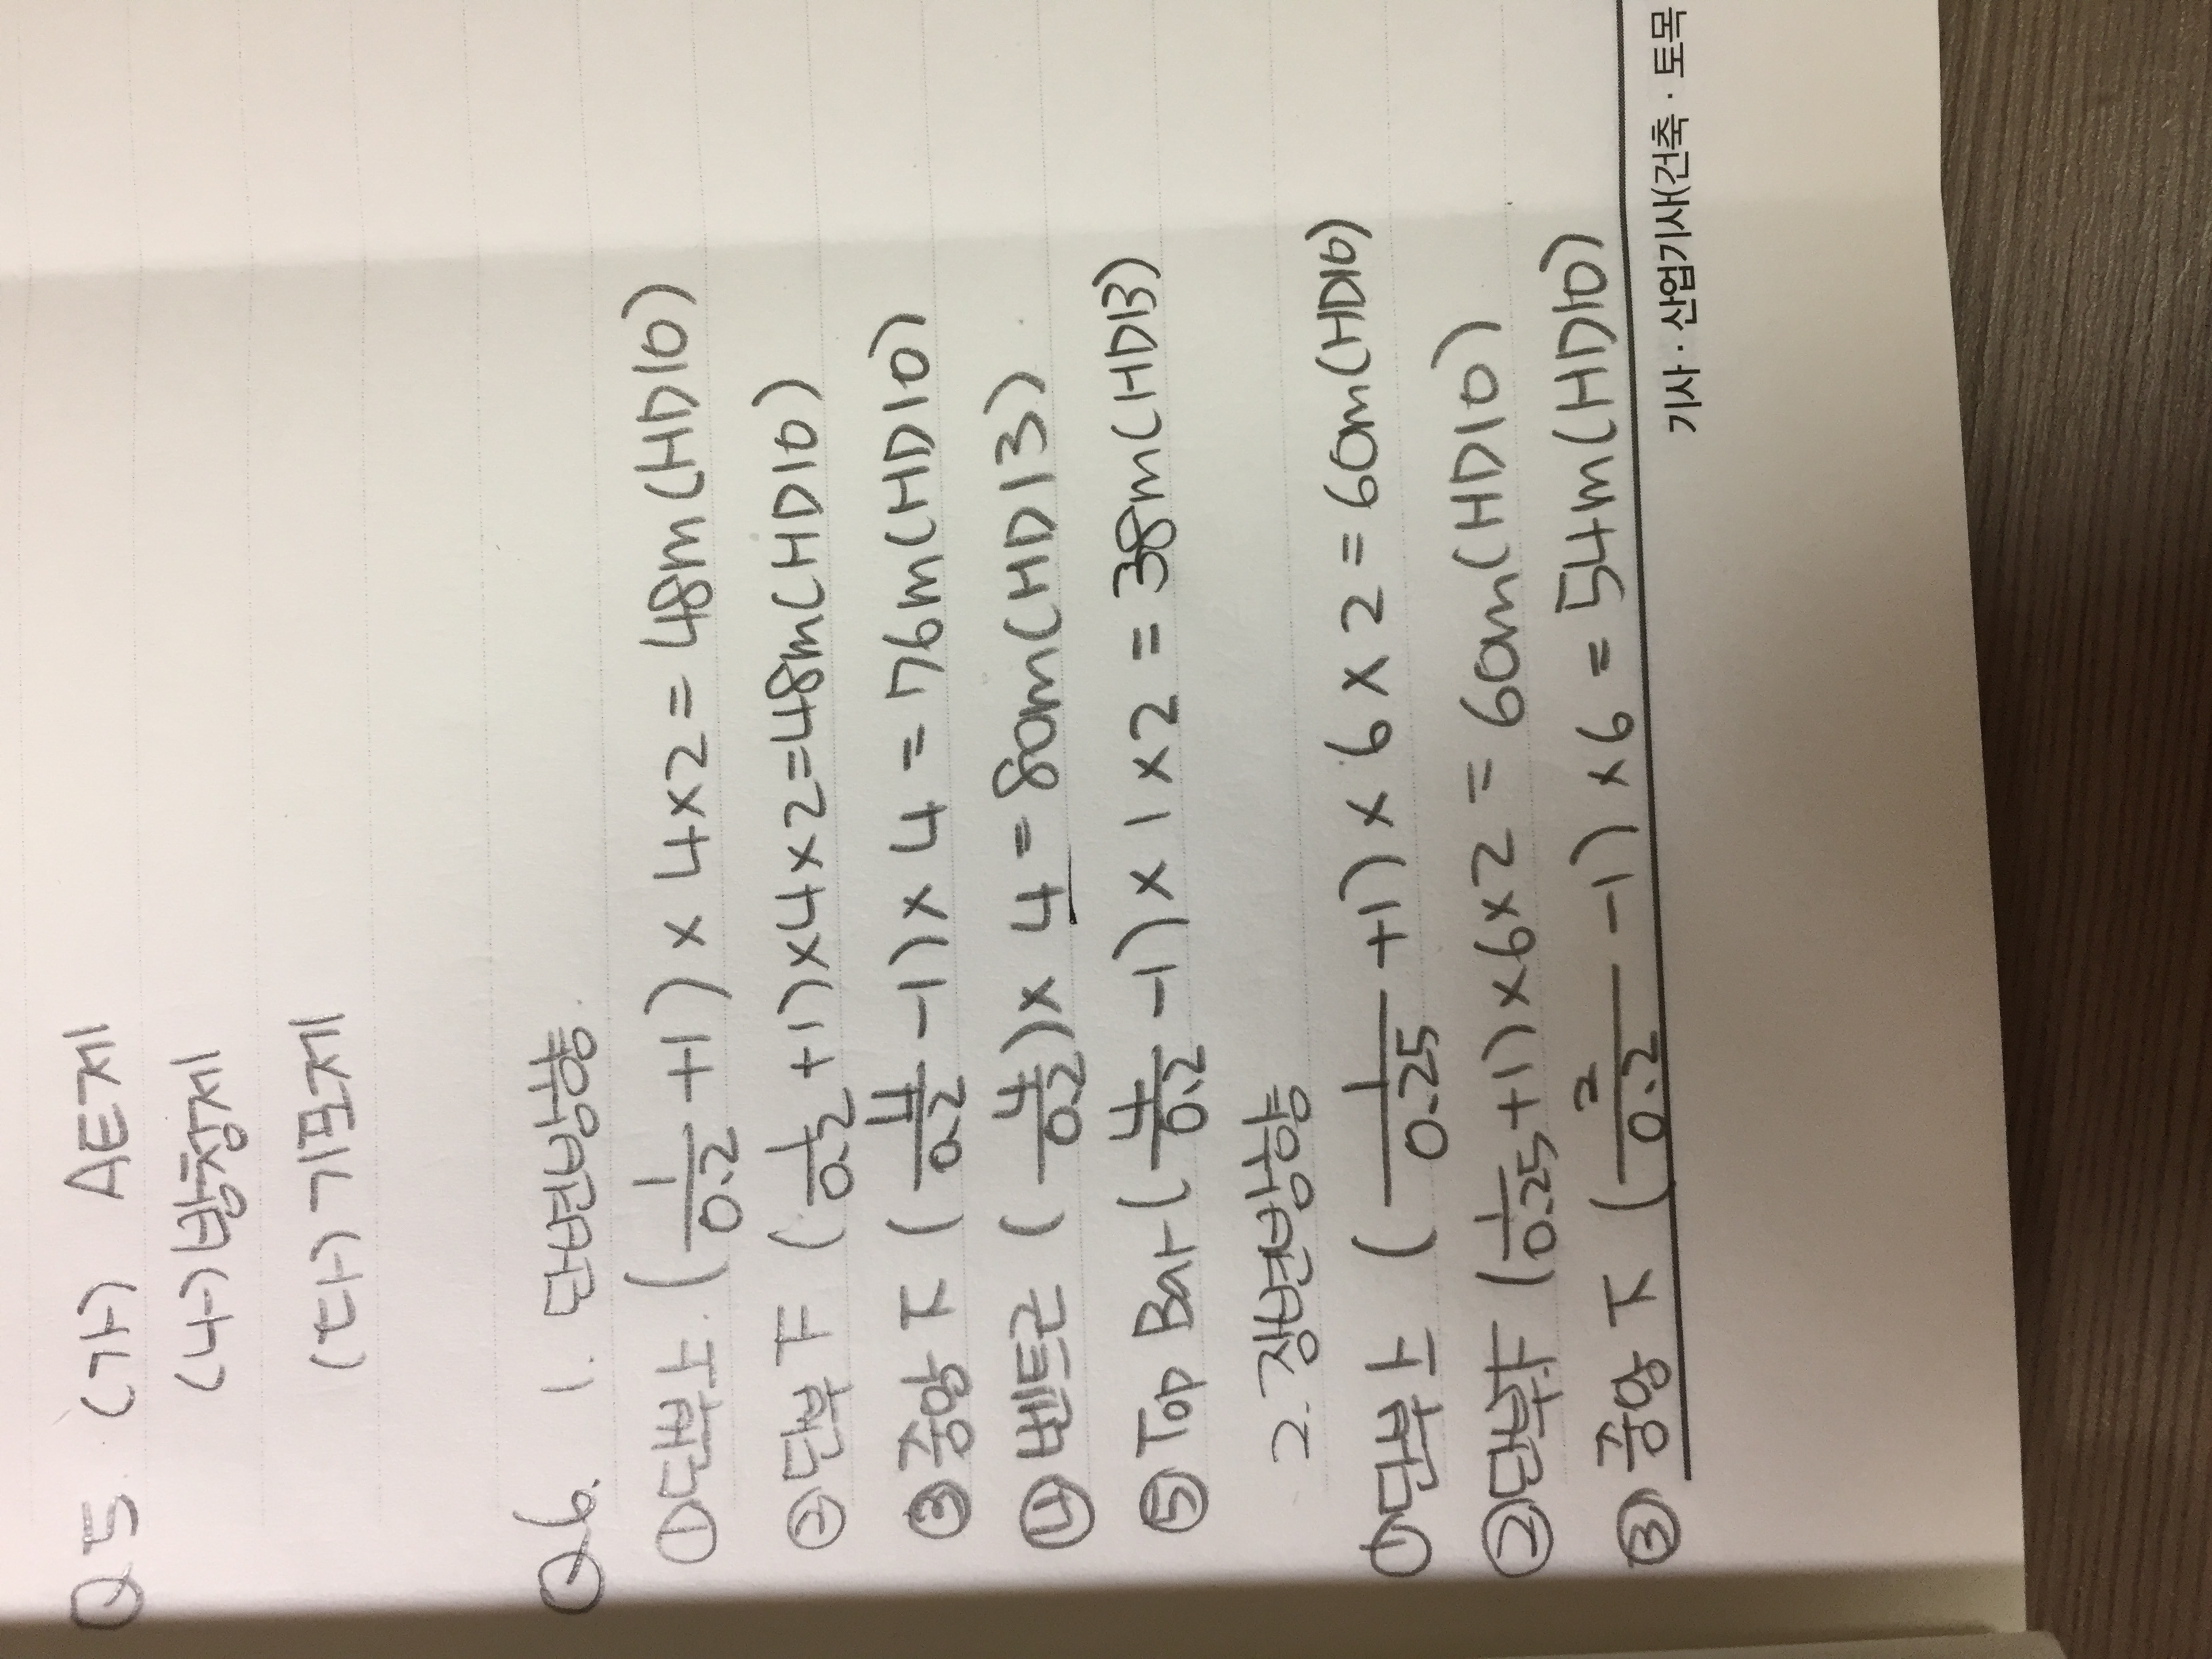 Q5. (가) AE제
(나) 방청제
(다) 기포제
Q6. 1. 단변방향.
① 단부 上. (1/0.2 +1) × 4×2 = 48m (HD10)
② 단부 下 (1/0.2 +1)×4×2=48m(HD10)
③ 중앙 下 (4/0.2 -1)× 4 = 76m(HD10)
④ 벤트근 (4/0.2)× 4 = 80m(HD13)
⑤ Top Bar (4/0.2 -1)× 1×2 = 38m(HD13)
2. 장변방향
① 단부 上 (1/0.25 +1) × 6 × 2 = 60m(HD10)
② 단부下 (1/0.25 +1)×6×2 = 60m(HD10)
③ 중앙 下 (2/0.2 -1)×6 = 54m(HD10)
기사 · 산업기사(건축 · 토목